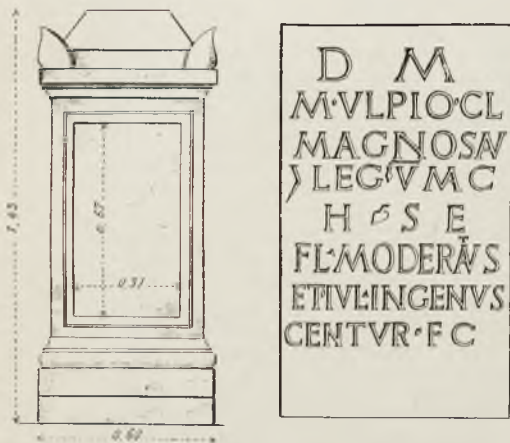 1,43
0,67
0,37
0,60
D M
M·VLPIO·CL
MAGNOSAV
) LEG V̅ M C
H S E
FL·MODERATVS
ETIVL·INGENVS
CENTVR·F C